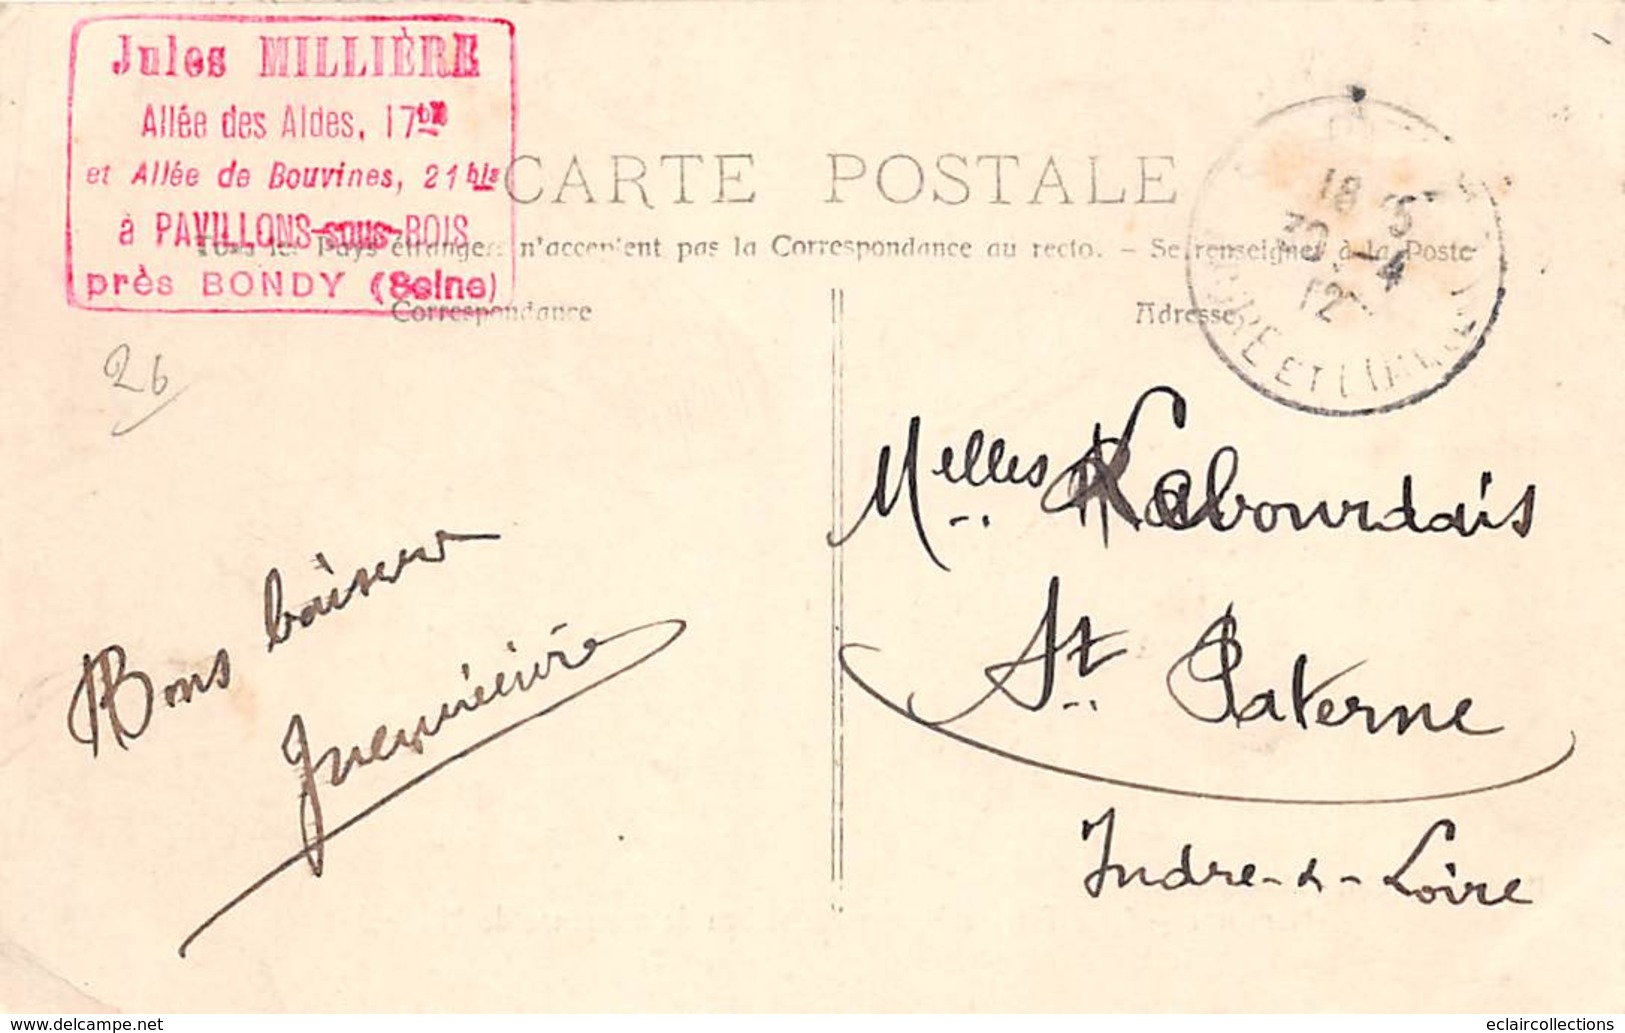 Jules MILLIÈRE
Allée des Aldes, 17 bis
et Allée de Bouvines, 21 bis
à PAVILLONS-sous-BOIS
près BONDY (Seine)
CARTE POSTALE
Tous les Pays étrangers n'acceptent pas la Correspondance au recto. - Se renseigner à la Poste
Correspondance
Adresse
18
30 - 4
12
INDRE ET LOIRE
26
Bons baisers
Melles Rabourdais
St Paterne
Indre-&-Loire
delcampe.net
eclaircollections